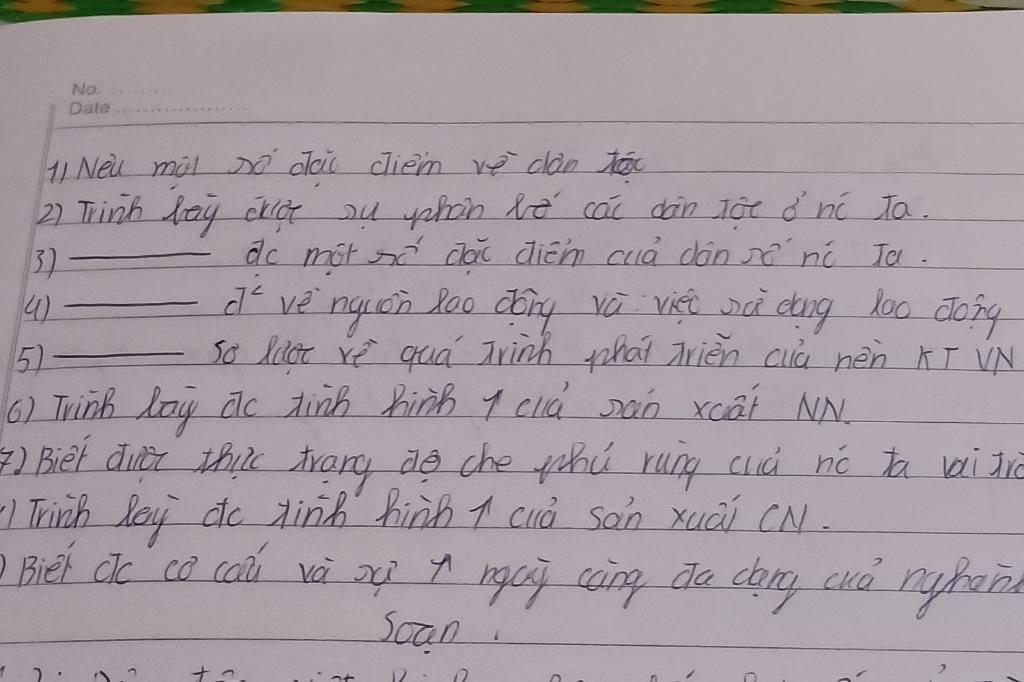 No. ..........
Date ....................
1) Nêu một số đặc điểm về dân tộc
2) Trình bày được sự phân bố các dân tộc ở nc ta.
3) ———— đc một số đặc điểm của dân số nc ta.
4) ———— đ² về nguồn lao động và việc sử dụng lao động
5) ———— sơ lược về quá trình phát triển của nền KT VN
6) Trình bày đc tình hình ↑ của sản xuất NN.
7) Biết được thực trạng độ che phủ rừng của nc ta vai trò
) Trình bày đc tình hình ↑ của sản xuất CN.
) Biết đc cơ cấu và sự ↑ ngày càng đa dạng của nghành
Soạn.